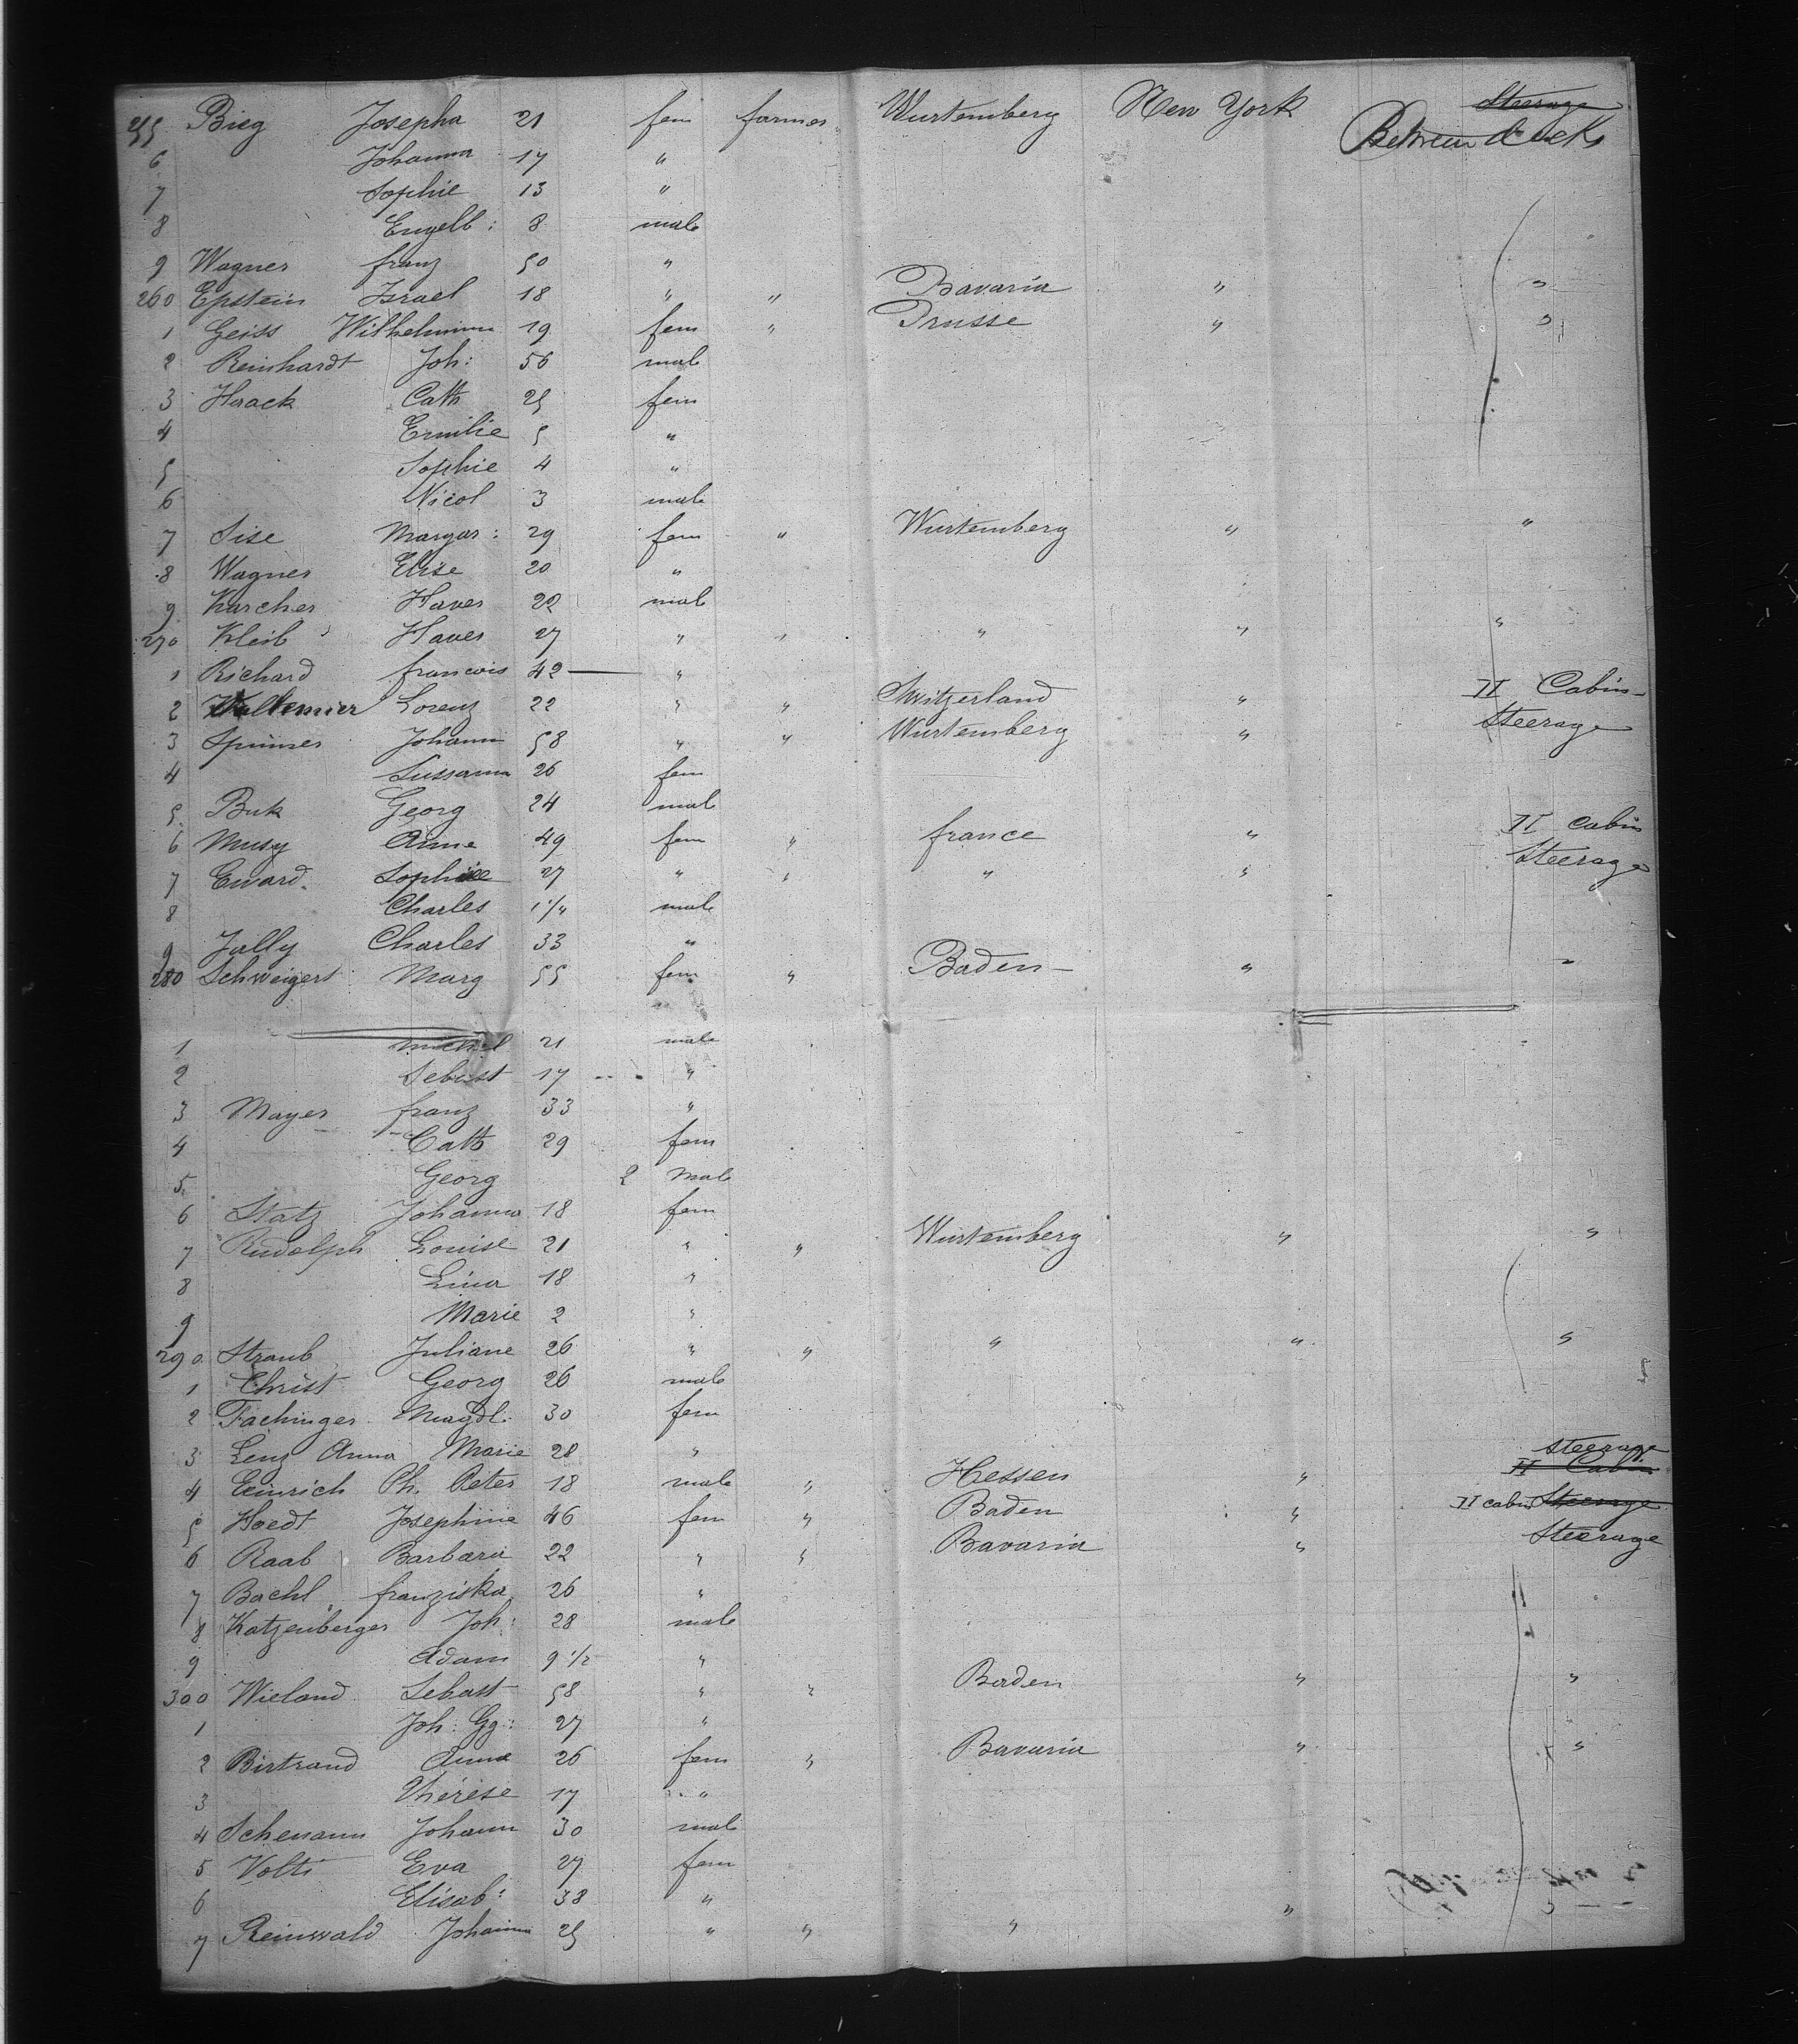 255 Bieg Josepha 21 fem farmer Wurtemberg New York Steerage Between decks
6 Johanna 17 "
7 Sophie 13 "
8 Engelb: 8 male
9 Wagner franz 50 "
260 Epstein Israel 18 " " Bavaria " "
1 Geiss Wilhelmina 19 fem " Prusse " "
2 Reinhardt Joh: 56 male
3 Haack Cath 25 fem
4 Emilie 5 "
5 Sophie 4 "
6 Nicol 3 male
7 Sise Margar: 29 fem " Wurtemberg " "
8 Wagner Elise 20 "
9 Karcher Xaver 22 male
270 Kleib Xaver 27 " " " " "
1 Richard francois 42 "
2 Lorenz 22 " " Switzerland " II Cabin
3 Spinner Johann 58 " " Wurtemberg " Steerage
4 Sussanna 26 fem
5 Buk Georg 24 male
6 Musy Anne 49 fem " france " II cabin
7 Eward Sophie 27 " " " " Steerage
8 Charles 1 1/4 male
9 Jally Charles 33 "
280 Schweigert Marg 55 fem " Baden " "
1 Michel 21 male
2 Sebast 17 "
3 Mayer franz 33 "
4 Cath 29 fem
5 Georg 2 male
6 Statz Johanna 18 fem
7 Rudolph Louise 21 " " Wurtemberg " "
8 Lina 18 "
9 Marie 2 "
290 Straub Juliane 26 " " " " "
1 Christ Georg 26 male
2 Fachinger Magdl: 30 fem
3 Lenz Anna Marie 28 "
4 Einrich Ph. Peter 18 male " Hessen " steerage II Cabin
5 Hoedt Josephine 46 fem " Baden " II cabin Steerage
6 Raab Barbara 22 " " Bavaria " Steerage
7 Bachl franziska 26 "
8 Katzenberger Joh: 28 male
9 Adam 9 1/2 "
300 Wieland Sebast 58 " " Baden " "
1 Joh: Gg: 27 "
2 Birtrand Anna 26 fem " Bavaria " "
3 Thérèse 17 "
4 Schemann Johann 30 male
5 Volti Eva 27 fem
6 Elisab: 38 "
7 Reinwald Johanna 25 " " " "